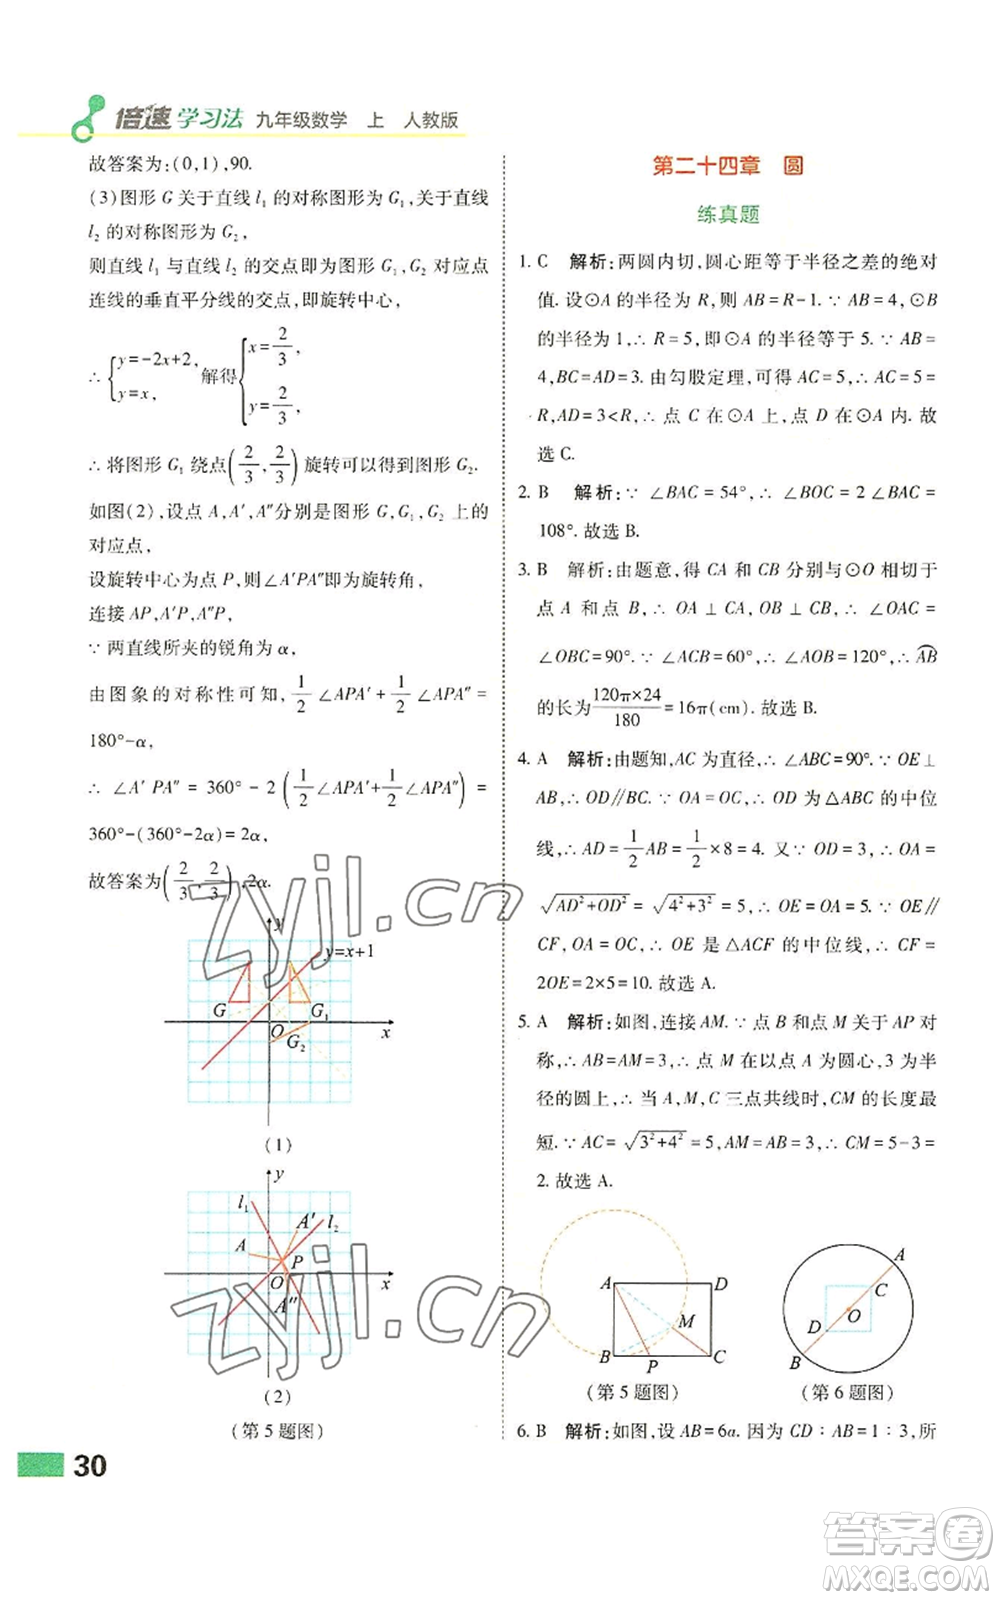 倍速学习法 九年级数学 上 人教版
故答案为:(0,1),90.
(3)图形 G 关于直线 l₁ 的对称图形为 G₁,关于直线
l₂ 的对称图形为 G₂,
则直线 l₁ 与直线 l₂ 的交点即为图形 G₁、G₂ 对应点
连线的垂直平分线的交点,即旋转中心,
∴ {y=-2x+2, y=x, 解得 {x=2/3, y=2/3,
∴ 将图形 G₁ 绕点(2/3, 2/3)旋转可以得到图形 G₂.
如图(2),设点 A,A′,A″分别是图形 G,G₁,G₂ 上的
对应点,
设旋转中心为点 P,则∠A′PA″即为旋转角,
连接 AP,A′P,A″P,
∵ 两直线所夹的锐角为 α,
由图象的对称性可知, 1/2 ∠APA′ + 1/2 ∠APA″ =
180°-α,
∴ ∠A′ PA″ = 360° - 2 (1/2 ∠APA′ + 1/2 ∠APA″) =
360°-(360°-2α)=2α,
故答案为(2/3, 2/3),2α.
zyjl.cn
y
y=x+1
G G₁
O x
G₂
(1)
y
l₁ A′ l₂
A P
O x
A″
zyjl.cn
(2)
(第 5 题图)
30
第二十四章 圆
练真题
1. C 解析:两圆内切,圆心距等于半径之差的绝对
值. 设⊙A 的半径为 R,则 AB=R-1. ∵ AB=4,⊙B
的半径为 1,∴ R=5,即⊙A 的半径等于 5. ∵ AB=
4,BC=AD=3. 由勾股定理,可得 AC=5,∴ AC=5=
R,AD=3<R,∴ 点 C 在⊙A 上,点 D 在⊙A 内. 故
选 C.
2. B 解析:∵ ∠BAC = 54°,∴ ∠BOC = 2 ∠BAC =
108°. 故选 B.
3. B 解析:由题意,得 CA 和 CB 分别与⊙O 相切于
点 A 和点 B,∴ OA ⊥ CA,OB ⊥ CB,∴ ∠OAC =
∠OBC=90°. ∵ ∠ACB=60°,∴ ∠AOB=120°,∴ AB⌢
的长为 120π×24/180 =16π(cm). 故选 B.
4. A 解析:由题知,AC 为直径,∴ ∠ABC=90°. ∵ OE⊥
AB,∴ OD∥BC. ∵ OA=OC,∴ OD 为△ABC 的中位
线,∴ AD= 1/2 AB= 1/2 ×8=4. 又∵ OD=3,∴ OA=
√(AD²+OD²) = √(4²+3²) =5,∴ OE=OA=5. ∵ OE∥
CF,OA=OC,∴ OE 是△ACF 的中位线,∴ CF=
2OE=2×5=10. 故选 A.
5. A 解析:如图,连接 AM. ∵ 点 B 和点 M 关于 AP 对
称,∴ AB=AM=3,∴ 点 M 在以点 A 为圆心,3 为半
径的圆上,∴ 当 A,M,C 三点共线时,CM 的长度最
短. ∵ AC= √(3²+4²) =5,AM=AB=3,∴ CM=5-3=
2. 故选 A.
A D
M
B P C
(第 5 题图)
A
C
O
D
B
(第 6 题图)
6. B 解析:如图,设 AB=6a. 因为 CD∶AB=1∶3,所
答案圈
MXQE.COM